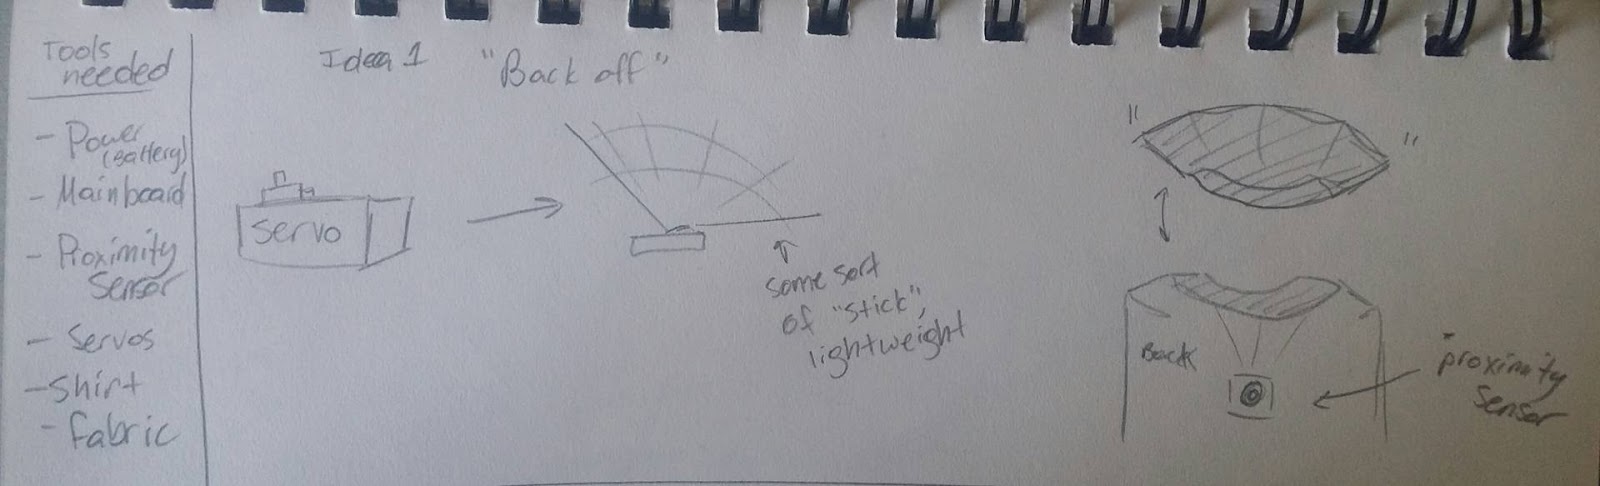 Tools
needed
- Power
(Battery)
- Mainboard
- Proximity
Sensor
- Servos
- Shirt
- fabric
Idea 1
"Back off"
servo
some sort
of "stick",
lightweight
" "
Back
proximity
sensor